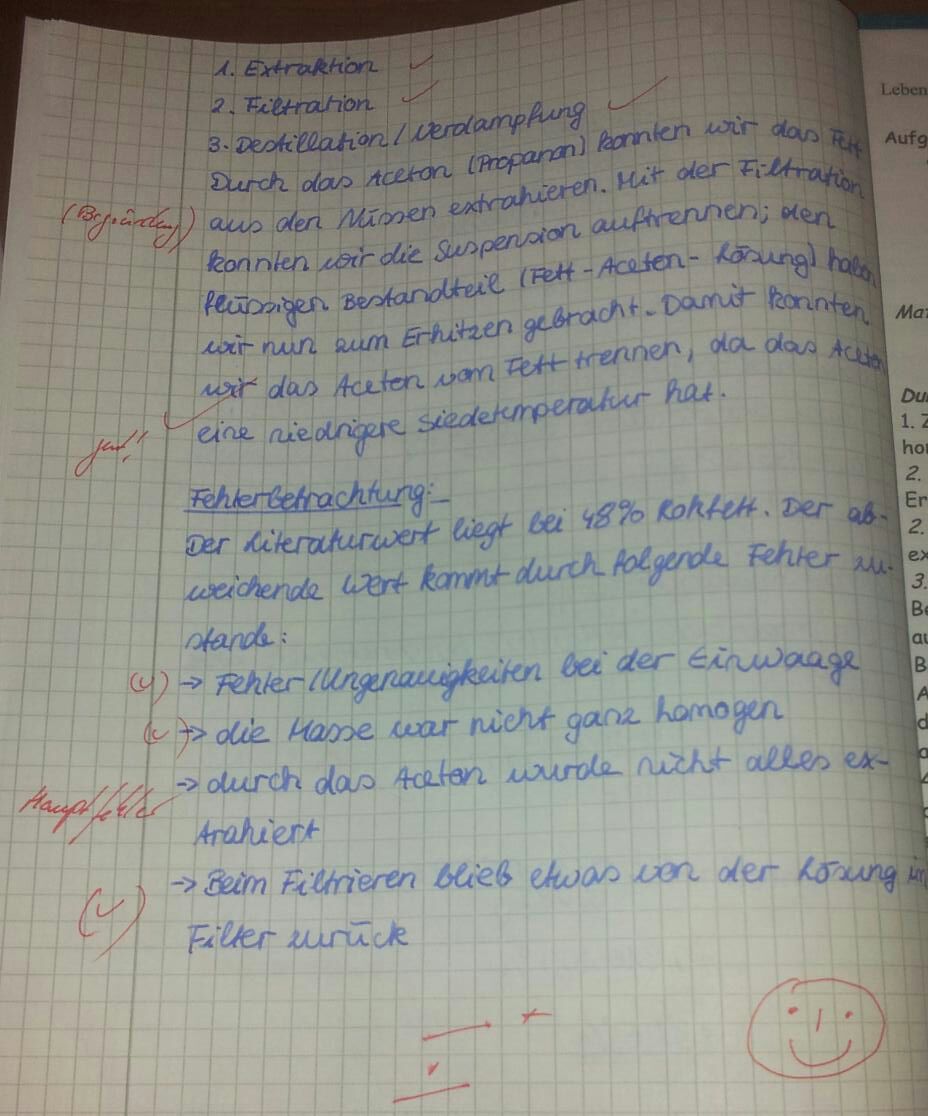 1. Extraktion
2. Filtration
3. Destillation / Verdampfung
Durch das Aceton (Propanon) konnten wir das Fett
(Begründung)
aus den Nüssen extrahieren. Mit der Filtration
konnten wir die Suspension auftrennen; den
flüssigen Bestandteil (Fett-Aceten-Lösung) haben
wir nun zum Erhitzen gebracht. Damit konnten
wir das Aceten vom Fett trennen, da das Aceten
eine niedrigere Siedetemperatur hat.
gut!
Fehlerbetrachtung:
Der Literaturwert liegt bei 48% Rohfett. Der ab-
weichende Wert kommt durch folgende Fehler zu-
stande:
→ Fehler/Ungenauigkeiten bei der Einwaage
→ die Masse war nicht ganz homogen
→ durch das Aceten wurde nicht alles ex-
Hauptfehler
trahiert
→ Beim Filtrieren blieb etwas von der Lösung im
Filter zurück
Leben
Aufg
Mat
Du
1. Z
hor
2.
Er
2.
ex
3.
Be
au
B
A
d